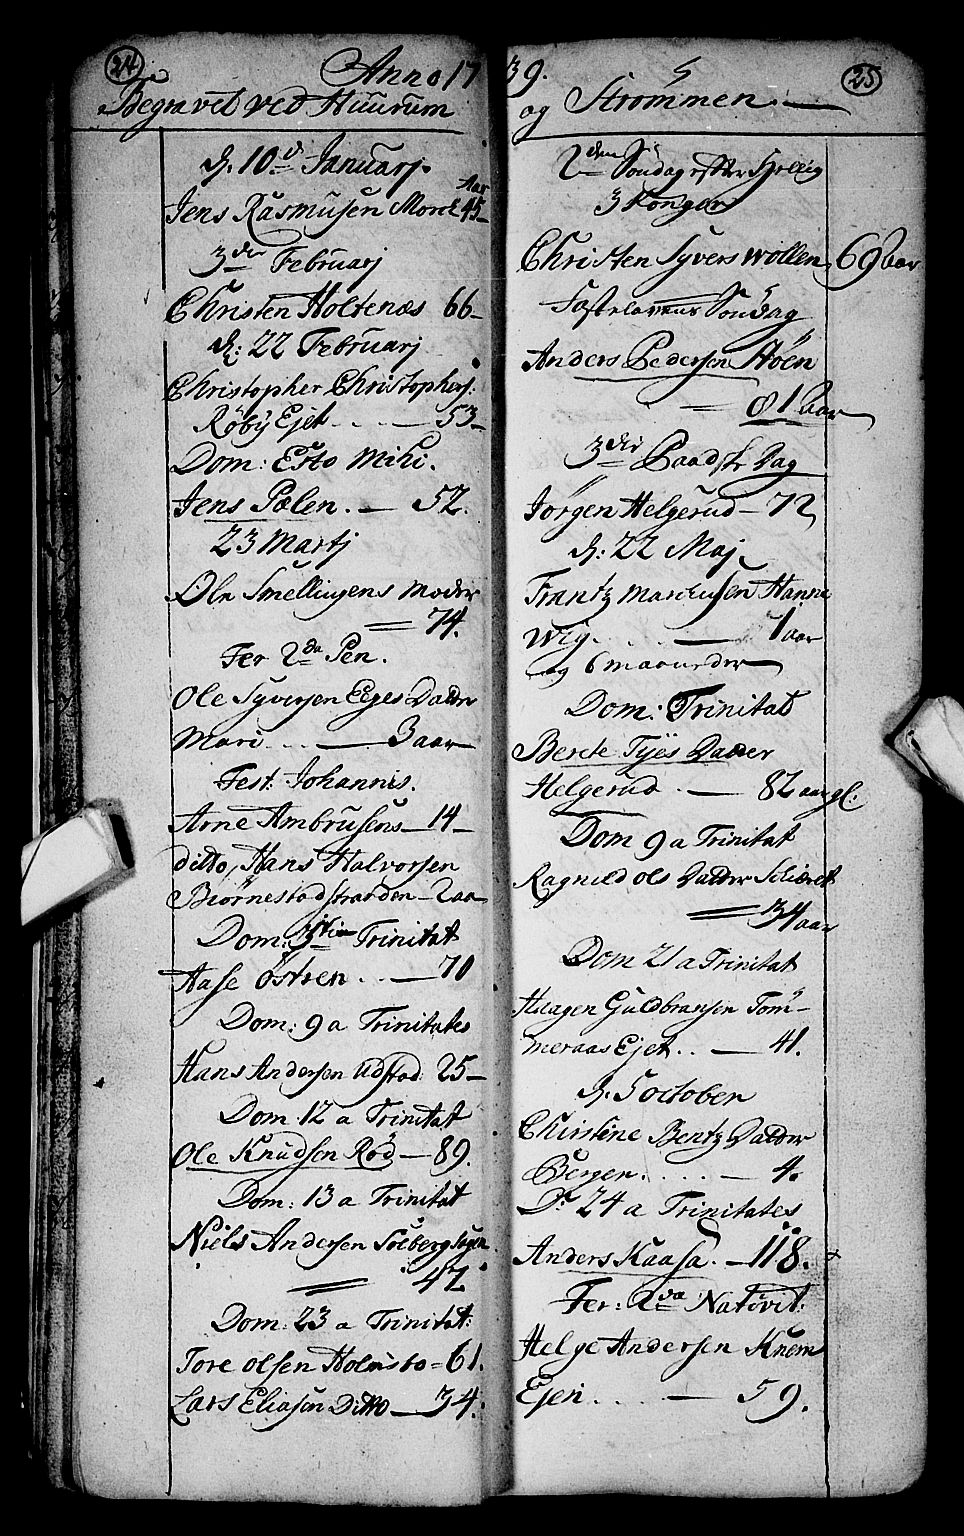 24
Anno 17
Begravet ved Huurum
d. 10d Januarj.
Aar
Jens Rasmusen Morck 45
3die Februarj
Christen Holtenæs 66
d: 22 Februarj
Christopher Christophers:
Røbÿ Ejet 53
Dom: Esto Mihi.
Jens Pælen. 52.
23 Martj
Ole Smellingens Moder
74.
Fer 2da Pen.
Ole Syversen Eeges Datter
Mari 3 aar
Fest: Johannis.
Arne Ambrusens 14
ditto, Hans Halvorsen
Biørnestadstranden 2 aar
Dom: 3tia Trinitat
Aase Østren 70
Dom: 9 a Trinitates
Hans Andersen Udstad 25
Dom: 12 a Trinitat
Ole Knudsen Rød 89.
Dom: 13 a Trinitat
Niels Andersen Solberg
42
Dom: 23 a Trinitat:
Tore Olsen Holmsbo 61.
Lars Eliasen Ditto 34.
39.
25
og Strømmen.
2den Søndag efter Hellig
3 Konger
Christen Syvers Wollen 69 aar
Fastelavens Søndag
Anders Pedersen Høen
81 aar
3die Paaske Dag
Jørgen Helgerud 72
d: 22 Maj.
Frantz Marcusen Hanne
Wig. 1 aar
og 6 maaneder
Dom. Trinitat
Berete Tyes Datter
Helgerud 82 aar gl:
Dom 9 a Trinitat
Ragnild Ols Datter Skiæret
34 aar
Dom 21 a Trinitat
Haagen Guldbransen Tøm-
meraas Ejet. 41.
d. 5 October
Christine Bentz Datter
Bergen. 4.
Dr 24 a Trinitates
Anders Kaasa. 118.
Fer: 2da Nativit:
Helge Andersen Knem
Ejeri 59.